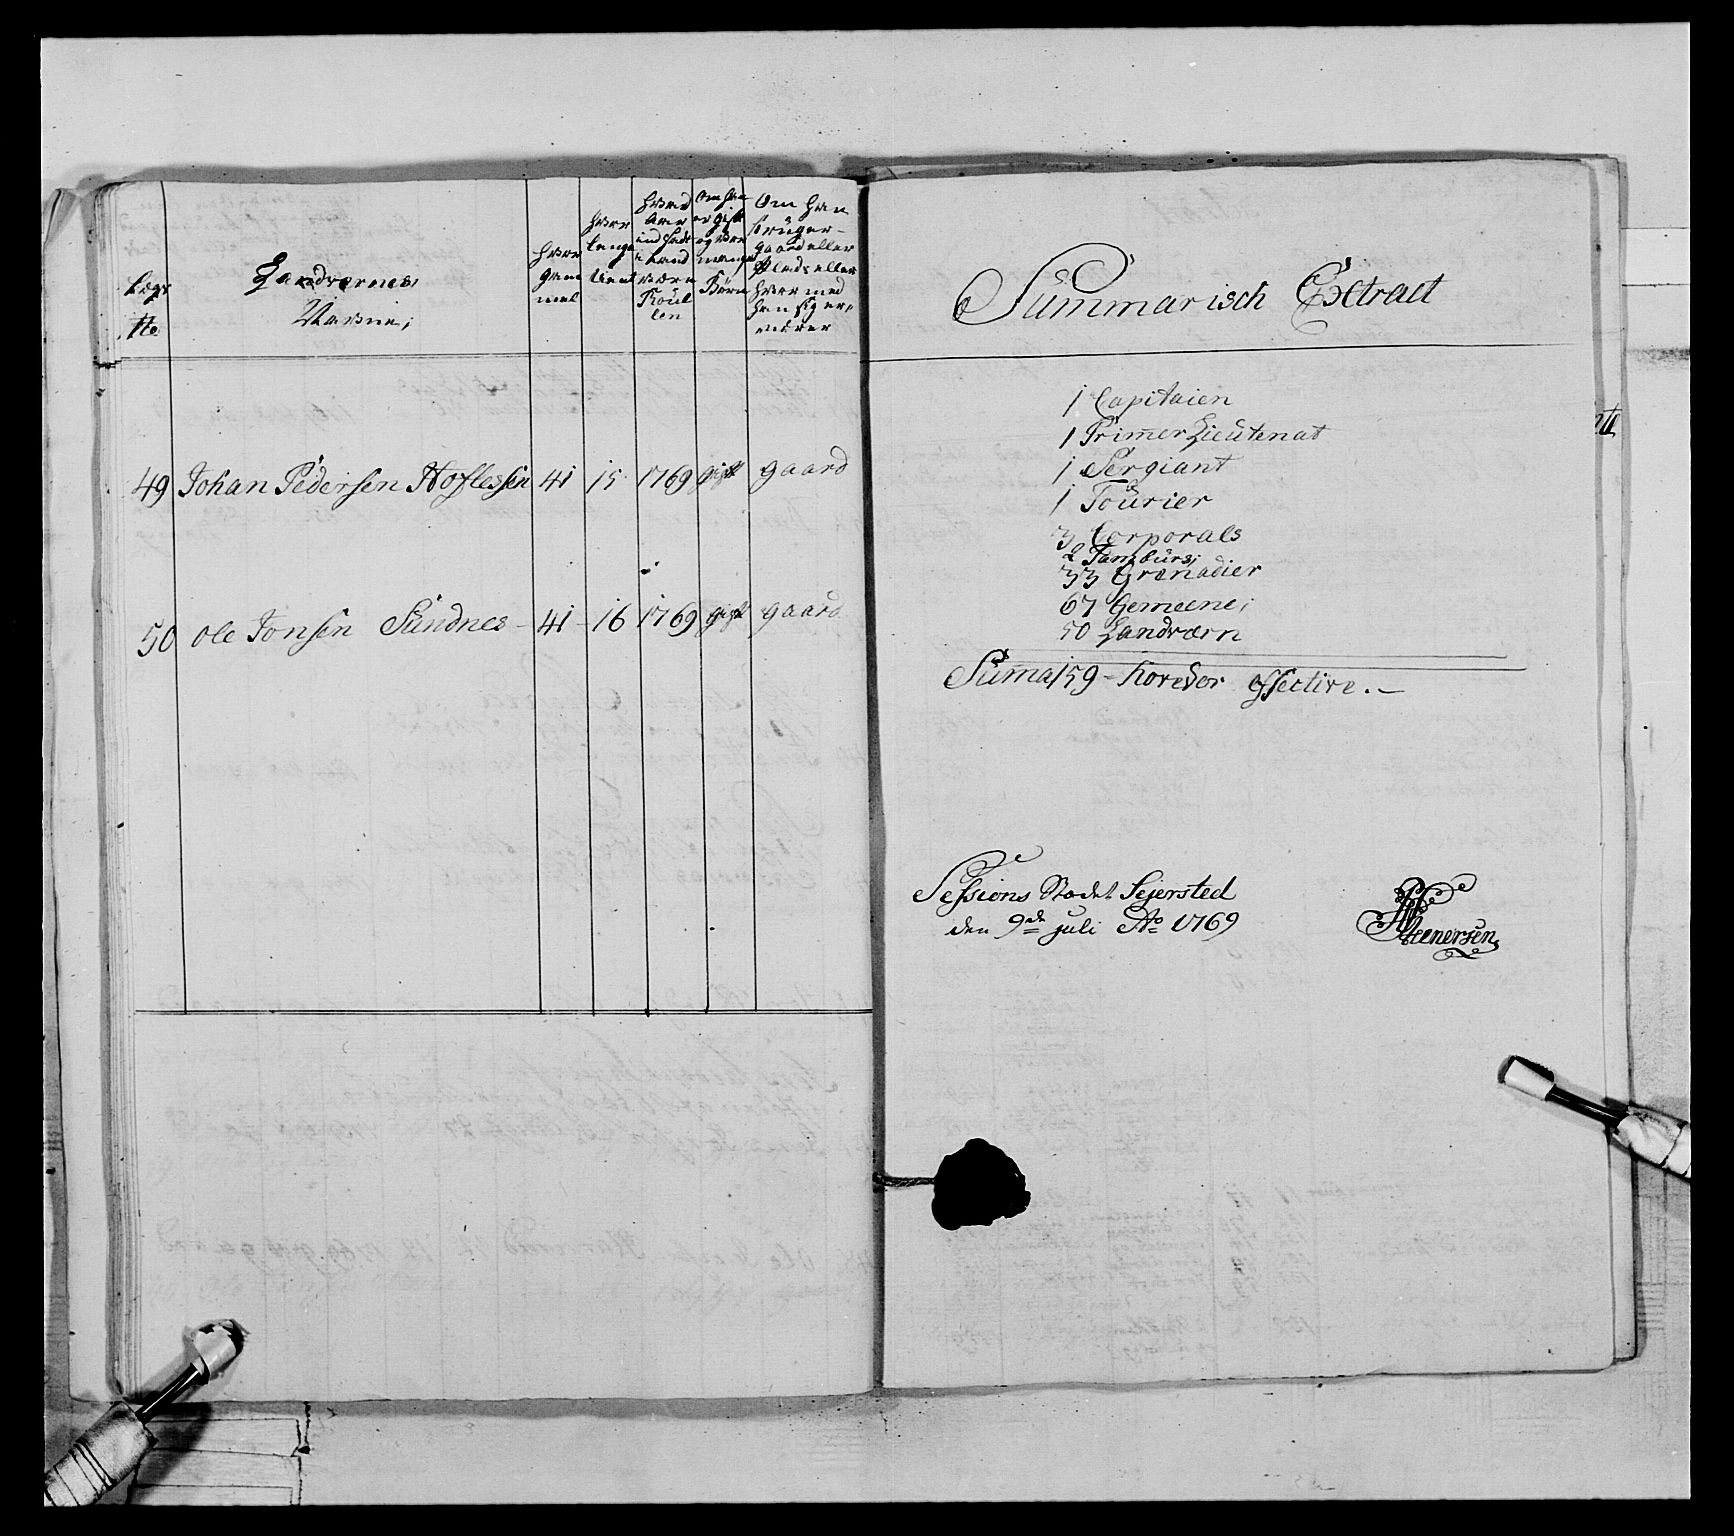 Legd
No
Landværnes
Navne;
hvor
gam
mel
hvor
lenge
tient
hvad
aar
ind sadt
i Land
værn
Roul
len
Om han
er gift
og hvor
mange
Børn
Om han
bruger
gaard eller
Plads eller
hvor med
han sig er,
nærer
49 Johan Pedersen Hoflessen 41 15 1769 gift gaard
50 Ole Jonsen Sundnes 41 16 1769 gift gaard
Summarisch Extract
1 Capitaien
1 Primer Lieutenat
1 Sergiant
1 Fourier
3 Corporals
2 Tamburs;
33 Grenadier
67 Gemeene;
50 Landværn
Suma 159 - hoveder effective. —
Sessions Stædet Sejersted
den 9de juli Ao 1769